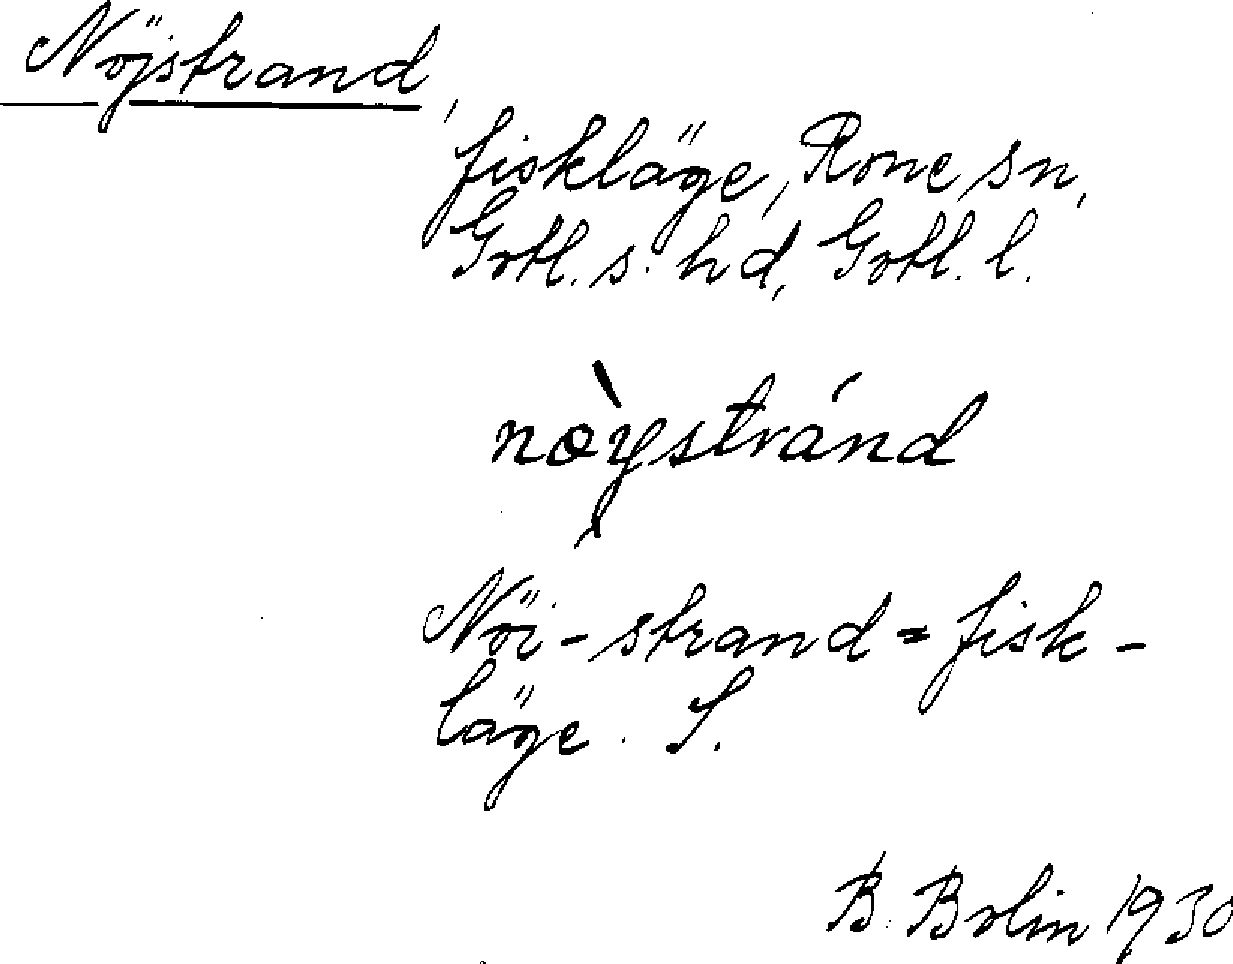 Nöjstrand,
fiskläge, Rone sn,
Gotl. s. hd, Gotl. l.
nòystránd
Nöi-strand = fisk-
läge. S.
B. Bolin 1930